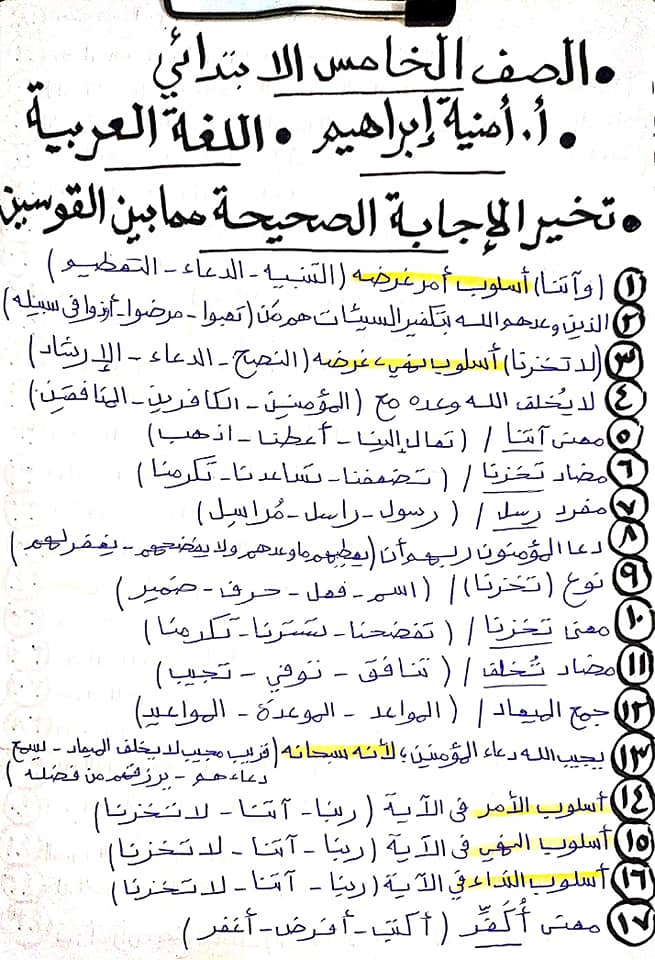 • الصف الخامس الابتدائي
• أ. أمنية إبراهيم • اللغة العربية
• تخير الإجابة الصحيحة مما بين القوسين
١ (وآتنا) أسلوب أمر غرضه (التنبيه - الدعاء - التعظيم)
٢ الذين وعدهم الله بتكفير السيئات هم مَن (تعبوا - مرضوا - أوذوا في سبيله)
٣ (لا تخزنا) أسلوب نهي، غرضه (النصح - الدعاء - الإرشاد)
٤ لا يُخلف الله وعده مع (المؤمنين - الكافرين - المنافقين)
٥ معنى آتنا / (تعال إلينا - أعطنا - اذهب)
٦ مضاد تخزنا / (تضعفنا - تساعدنا - تكرمنا)
٧ مفرد رسل / (رسول - راسل - مُراسِل)
٨ دعا المؤمنون ربهم أن (يعطيهم ما وعدهم ولا يفضحهم - يغفر لهم)
٩ نوع (تخزنا) / (اسم - فعل - حرف - ضمير)
١٠ معنى تخزنا / (تفضحنا - تسترنا - تكرمنا)
١١ مضاد تُخلف / (تنافق - توفي - تجيب)
١٢ جمع الميعاد / (المواعد - الموعدة - المواعيد)
١٣ يجيب الله دعاء المؤمنين؛ لأنه سبحانه (قريب مجيب لا يخلف الميعاد - يسمع
دعاءهم - يرزقهم من فضله)
١٤ أسلوب الأمر في الآية (ربنا - آتنا - لا تخزنا)
١٥ أسلوب النهي في الآية (ربنا - آتنا - لا تخزنا)
١٦ أسلوب النداء في الآية (ربنا - آتنا - لا تخزنا)
١٧ معنى أُكَفِّر (أكتب - أفرض - أغفر)